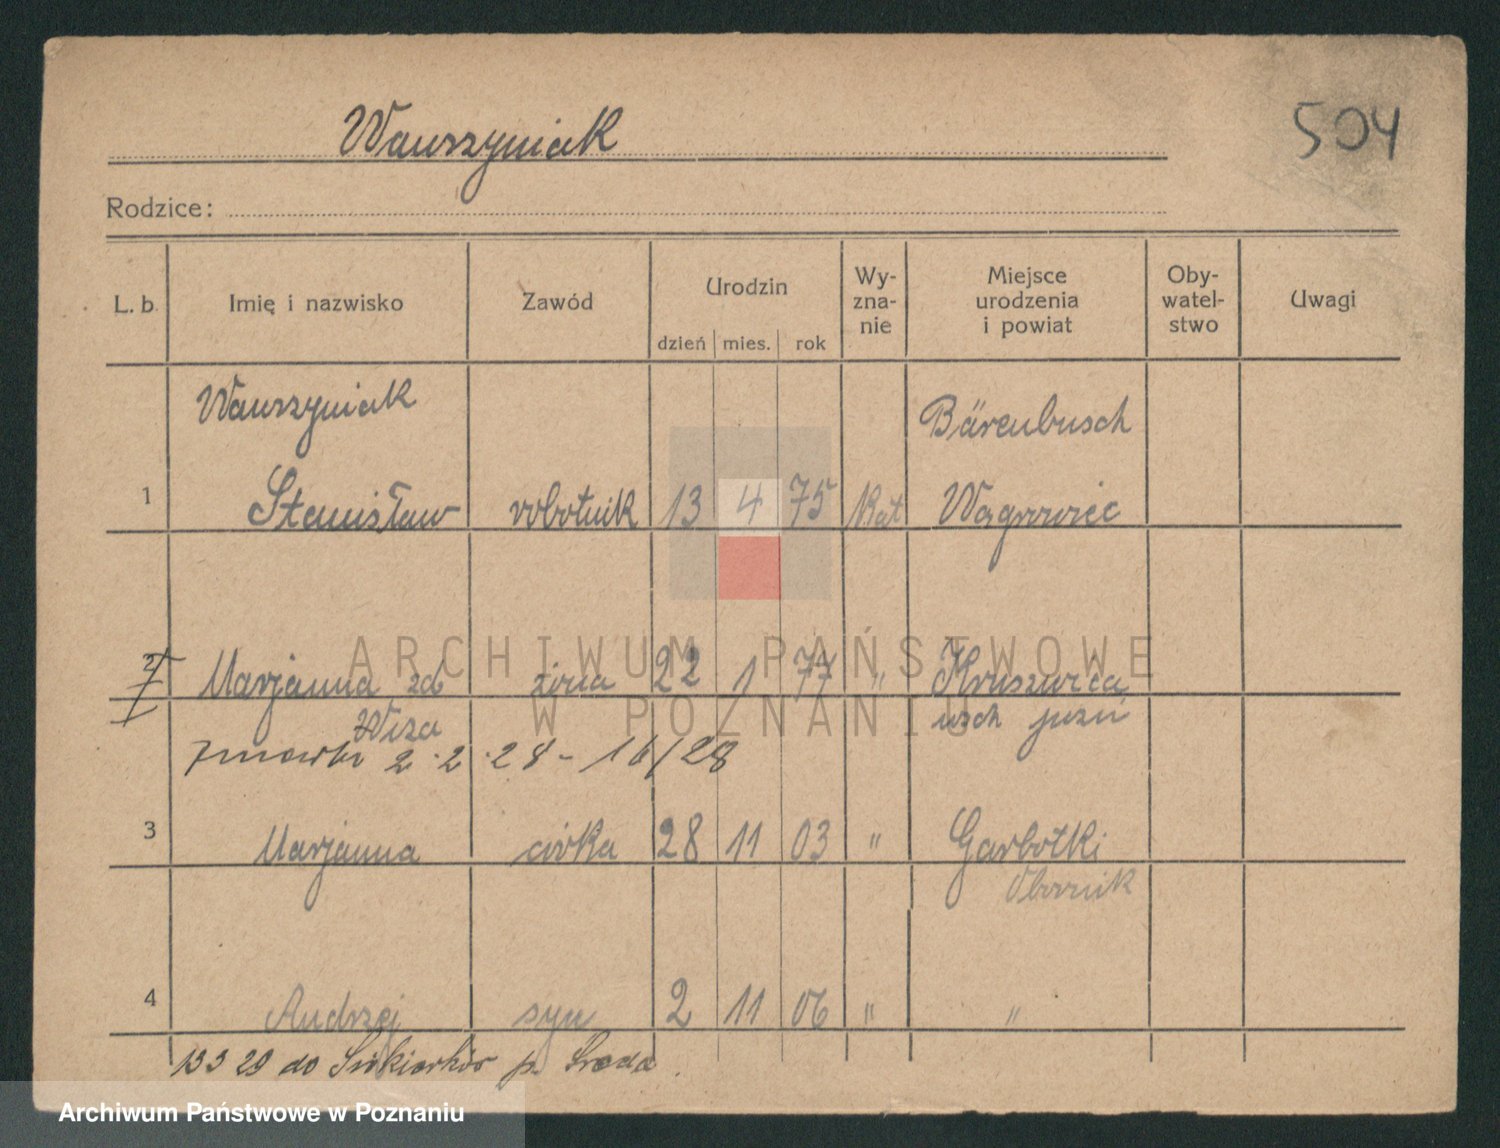 Wawrzyniak
504
Rodzice:
L. b. Imię i nazwisko Zawód Urodzin dzień mies. rok Wy-zna-nie Miejsce urodzenia i powiat Oby-watel-stwo Uwagi
Wawrzyniak Bärenbusch
1 Stanisław robotnik 13 4 75 Kat Wągrowiec
ARCHIWUM PAŃSTWOWE
W POZNANIU
2 Marjanna zd żona 22 1 77 " Kruszwica
Wiza
zmarła 2.2.28 - 16/28
3 Marjanna córka 28 11 03 " Garbatki
Obornik
4 Andrzej syn 2 11 06 " "
13 3 29 do p. Środa
Archiwum Państwowe w Poznaniu